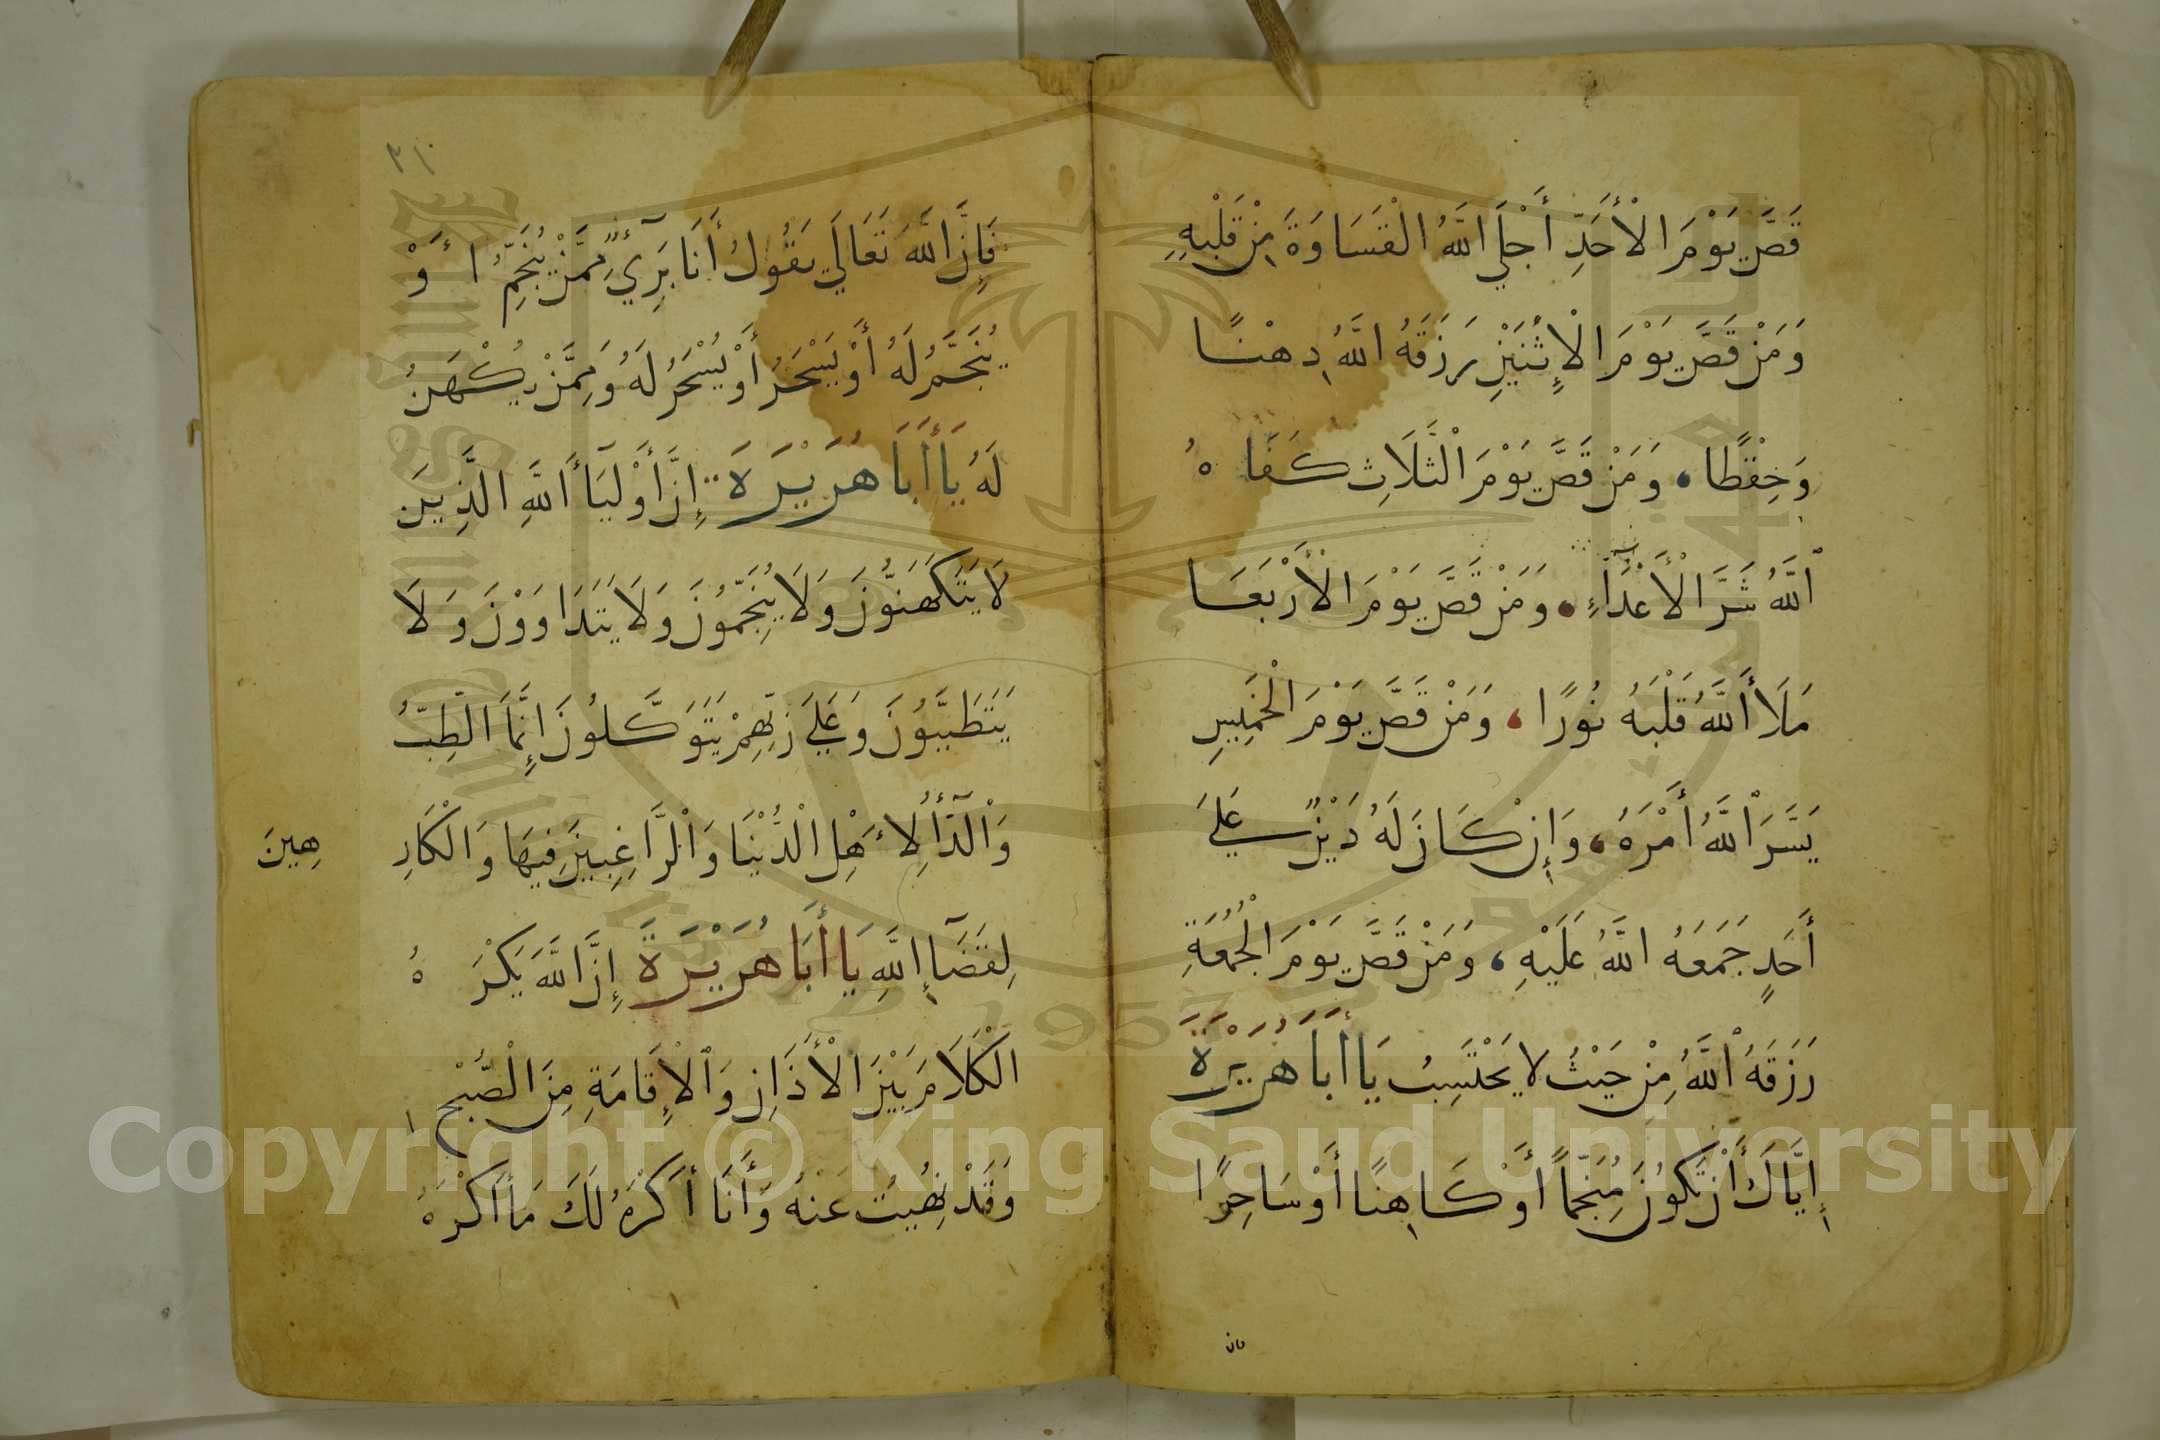 قَصَّ يَوْمَ الْأَحَدِّ أَجْلَي اللَّهُ الْقَسَاوَةَ مِنْ قَلْبِهِ
وَمَنْ قَصَّ يَوْمَ الْإِثْنَيْنِ رَزَقَهُ اللَّهُ دِهْنًا
وَحِفْظًا، وَمَنْ قَصَّ يَوْمَ الْثَّلَاثِ كَفَا هُ
اللَّهُ شَرَّ الْأَعْدَآءِ، وَمَنْ قَصَّ يَوْمَ الْأَرْبَعَا
مَلَأَ اللَّهُ قَلْبَهُ نُورًا، وَمَنْ قَصَّ يَوْمَ الْخَمِيِسِ
يَسَّرَ اللَّهُ أَمْرَهُ، وَإِنْ كَانَ لَهُ دَيْنٌ عَلَيَ
أَحَدٍ جَمَعَهُ اللَّهُ عَلَيْهِ، وَمَنْ قَصَّ يَوْمَ الْجُمُعَةِ
رَزَقَهُ اللَّهُ مِنْ حَيْثُ لا يَحْتَسِبُ يَا أَبَا هُرَيْرَةَ
إِيَّاكَ أَنْ تَكُونَ مُنَجِّمًا أَوْ كَاهِنًا أَوْ سَاحِرًا
فان
٣١٠
فَإِنَّ اللَّهَ تَعَالَي يَقُولُ أَنَا بَرِيٌ مِمَّنْ يُنَجِّمُ أَوْ
يُنَجَّمُ لَهُ أَوْ يَسْحَرُ أَوْ يُسْحَرُ لَهُ وَمِمَّنْ يُكْهَنُ
لَهُ يَا أَبَا هُرَيْرَةَ إِنَّ أَوْلِيَاءَ اللَّهِ الَّذِينَ
لَا يَتَكَهَّنُونَ وَلَا يُنَجِّمُونَ وَلَا يَتَدَاوَوْنَ وَلَا
يَتَطَبَّبُونَ وَعَلَي رَبِّهِمْ يَتَوَكَّلُونَ إِنَّمَا الْطِّبُّ
وَالْدَّآءُ لِأَهْلِ الْدُّنْيَا وَالْرَّاغِبِينَ فِيهَا وَالْكَارِ
هِينَ
لِقَضَآءِ اللَّهِ يَا أَبَا هُرَيْرَةَ إِنَّ اللَّهَ يَكْرَ هُ
الْكَلَامَ بَيْنَ الْأَذَانِ وَالْإِقَامَةِ مِنَ الْصُّبْحِ
وَقَدْ نُهِيْتُ عَنْهُ وَأَنَا أَكْرَهُ لَكَ مَا أَكْرَهُ
Copyright © King Saud University
1957